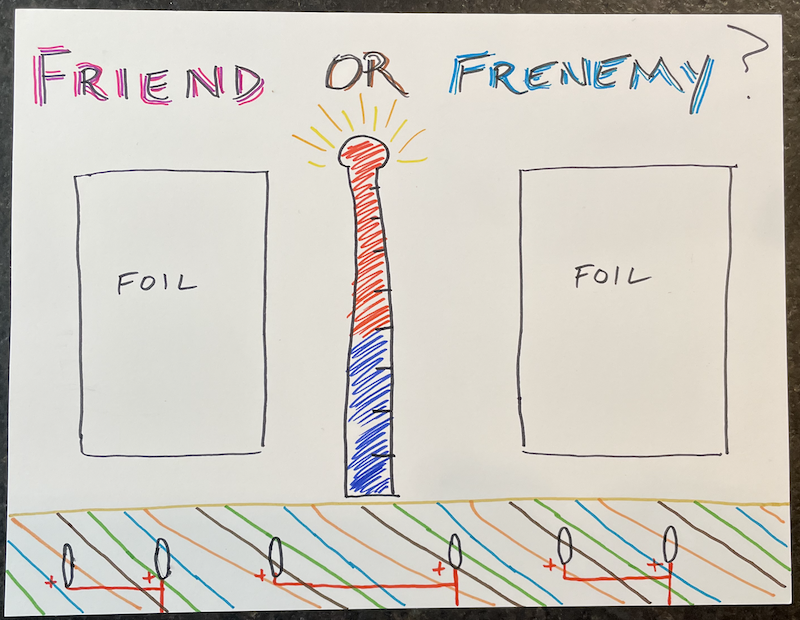 FRIEND OR FRENEMY?
FOIL FOIL
+ + + + + +